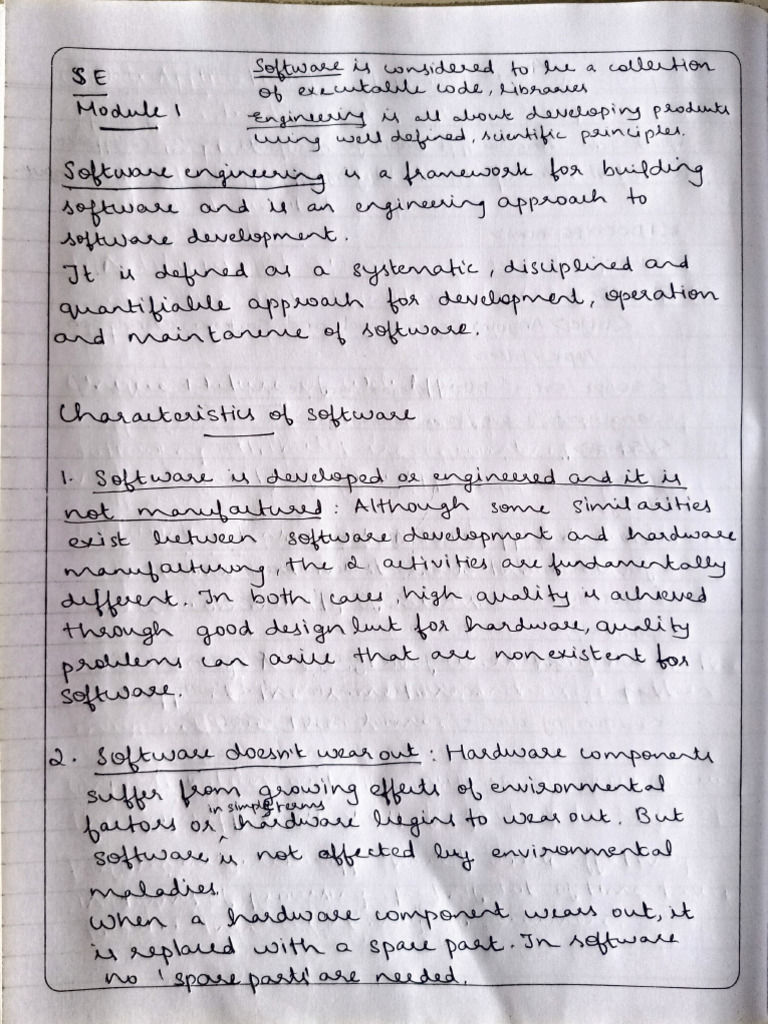 SE
Module 1
Software is considered to be a collection
of executable code, libraries
Engineering is all about developing products
using well defined, scientific principles.
Software engineering is a framework for building
software and is an engineering approach to
software development.
It is defined as a systematic, disciplined and
quantifiable approach for development, operation
and maintanence of software.
Characteristics of software
1. Software is developed or engineered and it is
not manufactured : Although some similarities
exist between software development and hardware
manufacturing, the 2 activities are fundamentally
different. In both cases, high quality is achieved
through good design but for hardware, quality
problems can arise that are nonexistent for
software.
2. Software doesn't wear out : Hardware components
suffer from growing effects of environmental
in simple terms
factors or hardware begins to wear out. But
software is not affected by environmental
maladies.
When a hardware component wears out, it
is replaced with a spare part. In software
no 'spare parts' are needed.